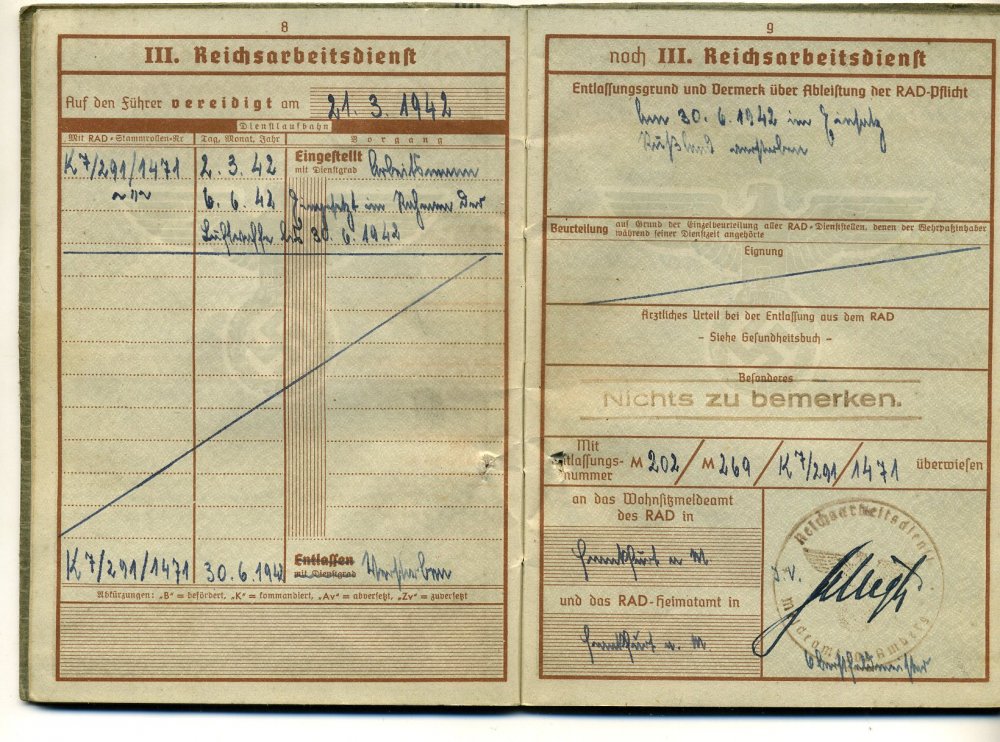 8
III. Reichsarbeitsdienst
Auf den Führer vereidigt am 21.3.1942
Dienstlaufbahn
Mit RAD-Stammrollen-Nr Tag, Monat, Jahr Vorgang
K 7/291/1471 2.3.42 Eingestellt mit Dienstgrad Arbeitsmann
6.6.42 Eingesetzt im Rahmen der
Luftwaffe bis 30.6.1942
K 7/291/1471 30.6.1942 Entlassen mit Dienstgrad Verstorben
Abkürzungen: „B" = befördert, „K" = kommandiert, „Av" = abversetzt, „Zv" = zuversetzt
9
noch III. Reichsarbeitsdienst
Entlassungsgrund und Vermerk über Ableistung der RAD-Pflicht
Am 30.6.1942 im Einsatz
Rußland verstorben
Beurteilung auf Grund der Einzelbeurteilung aller RAD-Dienststellen, denen der Wehrpaßinhaber
während seiner Dienstzeit angehörte
Eignung
Ärztliches Urteil bei der Entlassung aus dem RAD
- Siehe Gesundheitsbuch -
Besonderes
Nichts zu bemerken.
Mit
Entlassungs- M 202 / M 269 / K 7/291 / 1471 überwiesen
nummer
an das Wohnsitzmeldeamt
des RAD in
Frankfurt a M
und das RAD-Heimatamt in
Frankfurt a. M
Reichsarbeitsdienst
Meldeamt Amberg
I.V.
Oberstfeldmeister